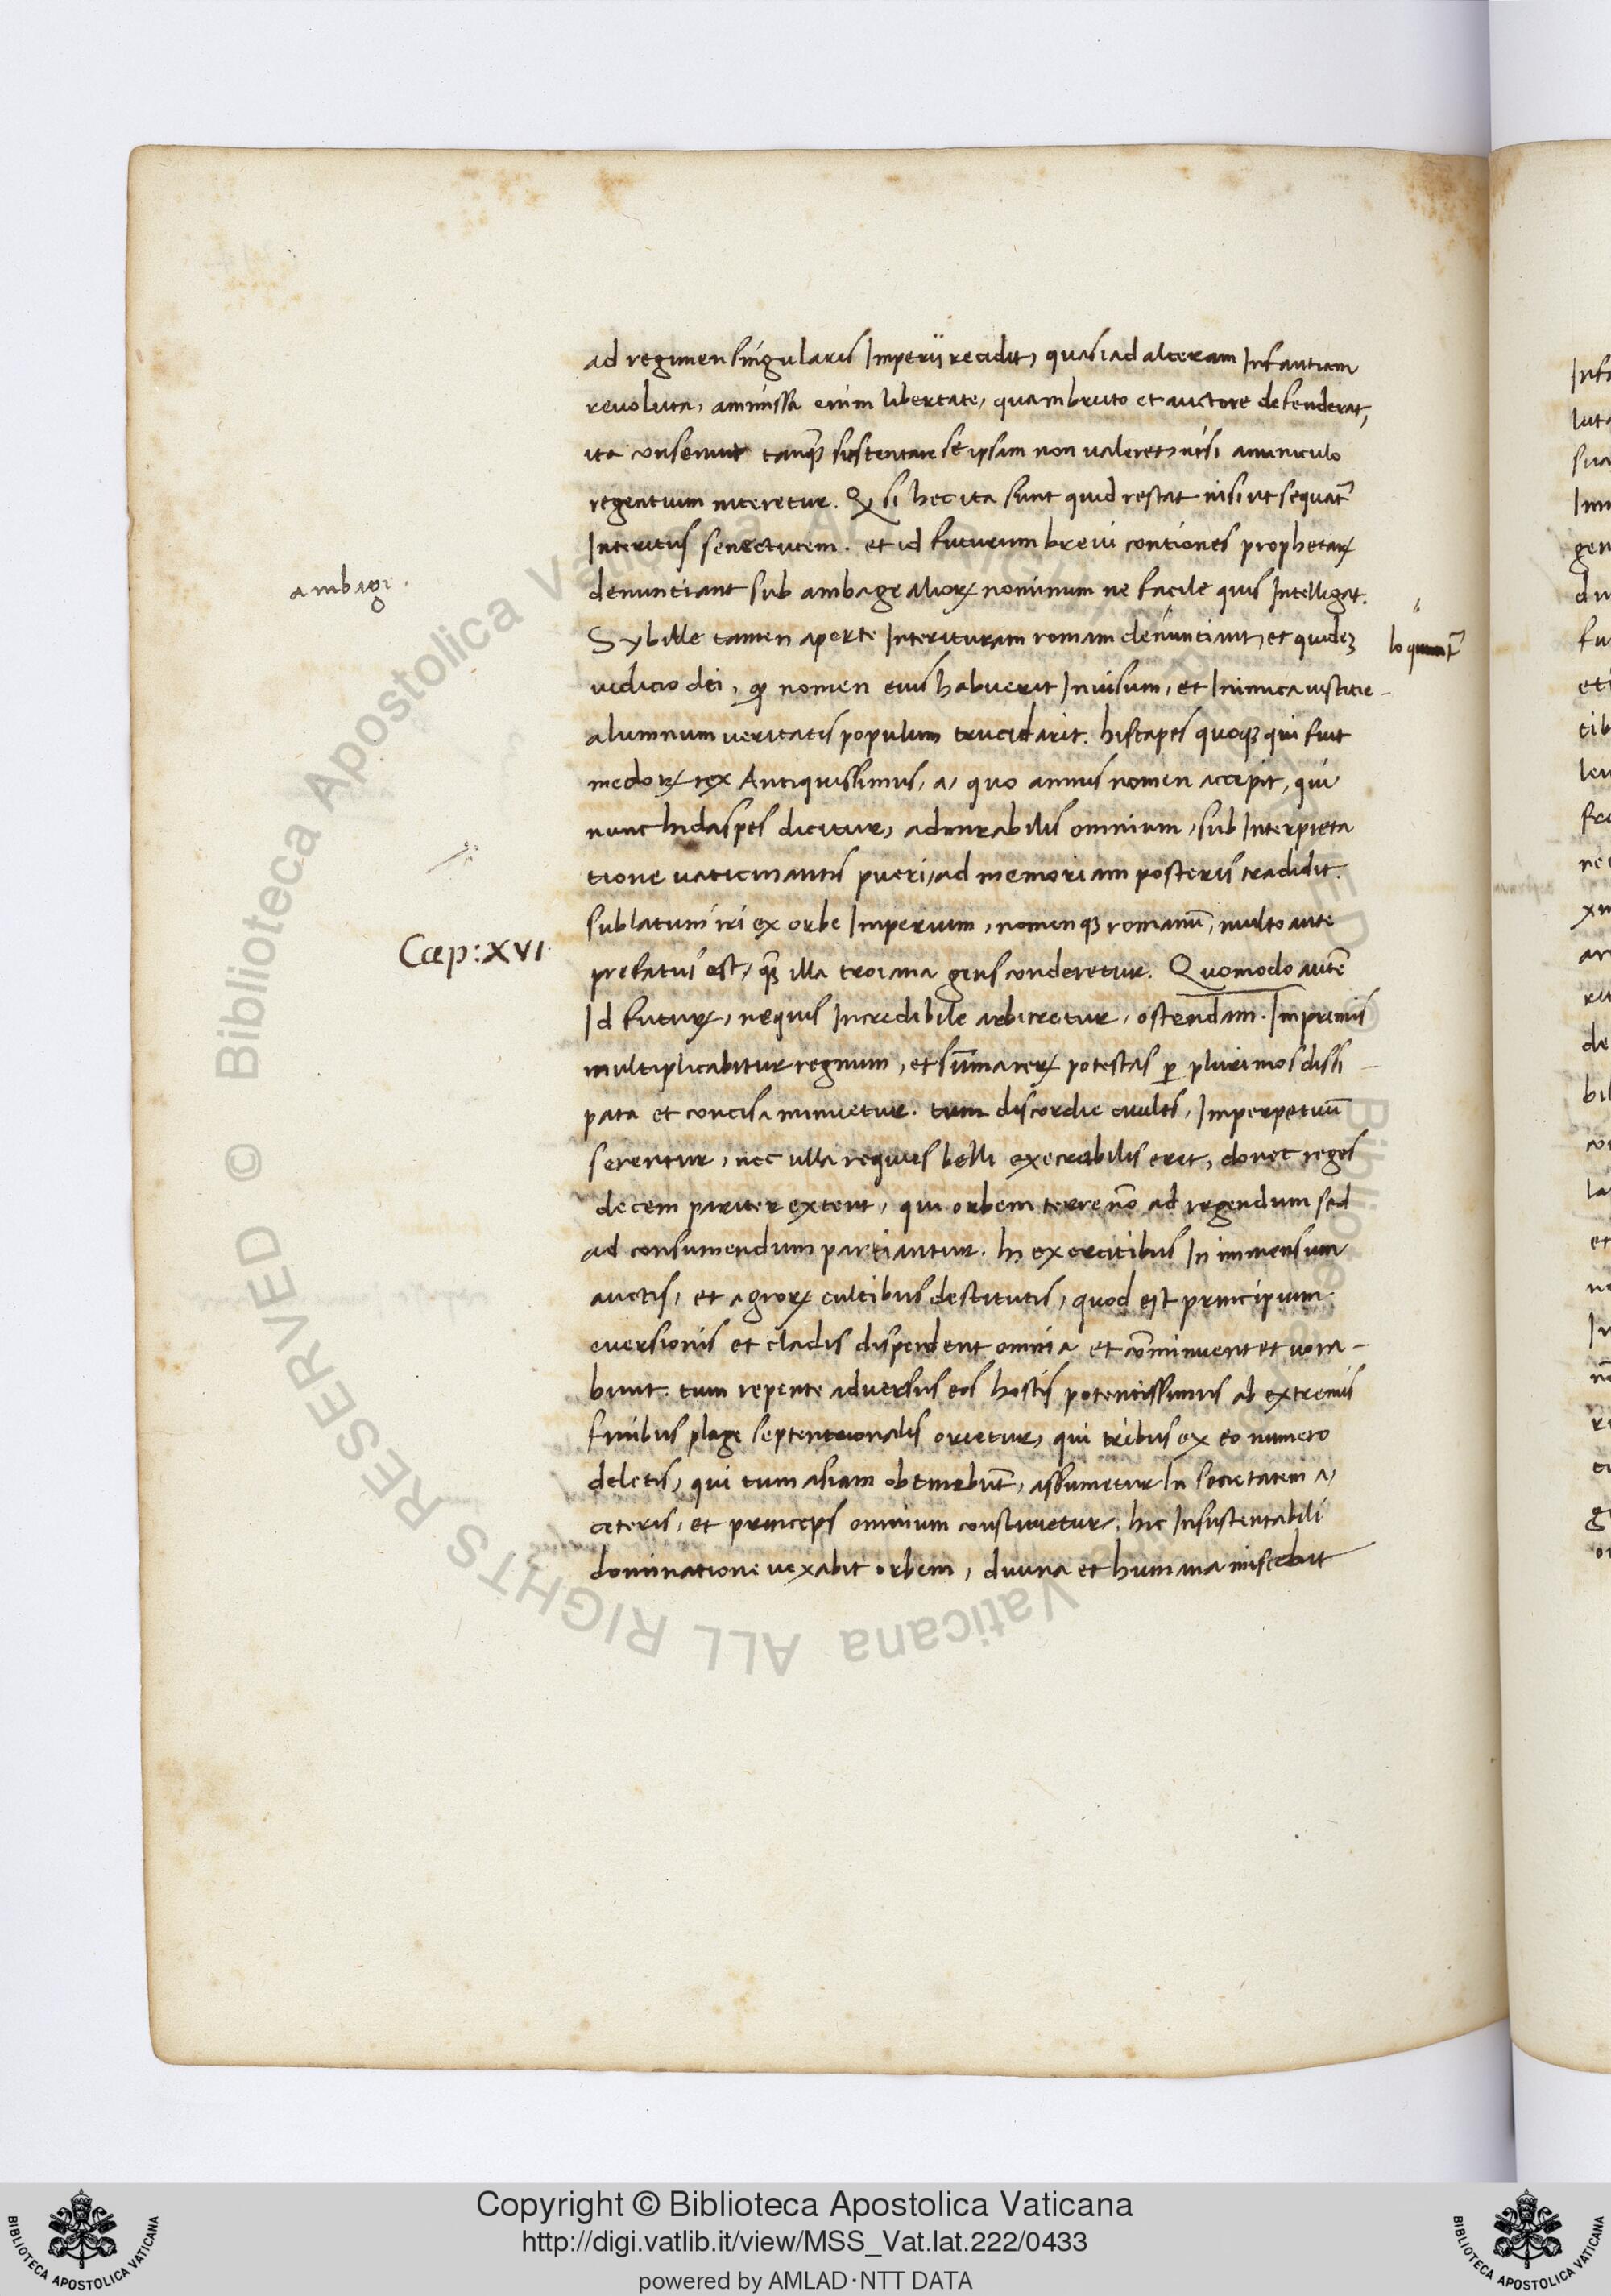 ad regimen singularis Imperij recidit, quasi ad alteram Infantiam
revoluta, amissa enim libertate, quam bruto et auctore defenderat,
ita consenuit tanq̃ sustentare se ipsam non valeret, nisi aminiculo
regentium niteretur. Q̷ si hec ita sunt quid restat nisi ut sequat̃
Interitus senectutem. et id futurum brevi contiones prophetaꝝ
ambage.
denuntiant sub ambage alioꝝ nominum ne facile quis Intelligat.
Sybille tamen aperte Interituram romam denuntiant, et quideʒ
loquunt̃
iudicio dei, ꝙ nomen eius habuerit Invisum, et Inimica iustitie-
alumnum veritatis populum trucidarit. histapes quoqʒ qui fuit
medoꝝ rex Antiquissimus, a, quo amnis nomen accepit, qui
nunc hidaspes dicitur, admirabilis omnium, sub Interpreta
tione vaticinantis pueri, ad memoriam posteris tradidit.
sublatum iri ex orbe Imperium, nomenqʒ romanũ, multo ante
Cap: XVI.
prefatus est, q̃ illa troiana gens conderetur. Quomodo autẽ
Id futuꝝ, nequis Incredibile arbitretur, ostendam. Imprimis
multiplicabitur regnum, et sũma reꝝ potestas ꝑ plurimos dissi-
pata et concisa minuetur. tum discordie civiles, Imperpetuũ
serentur, nec ulla requies belli execrabilis erit, donec reges
decem pariter extent, qui orbem terre nõ ad regendum sed
ad consumendum partiantur. hi exercitibus In immensum
auctis, et agroꝝ cultibus destitutis, quod est principium
eversionis et cladis dispendent omnia et cõminuent et vora-
bunt. tum repente adversus eos hostis potentissimus ab extremis
finibus plage septentrionalis orietur, qui tribus ex eo numero
deletis, qui tum asiam obtinebũt, assumetur In societatem a,
ceteris, et princeps omnium constituetur, hic Insustentabili
dominatione vexabit orbem, divina et humana miscebit